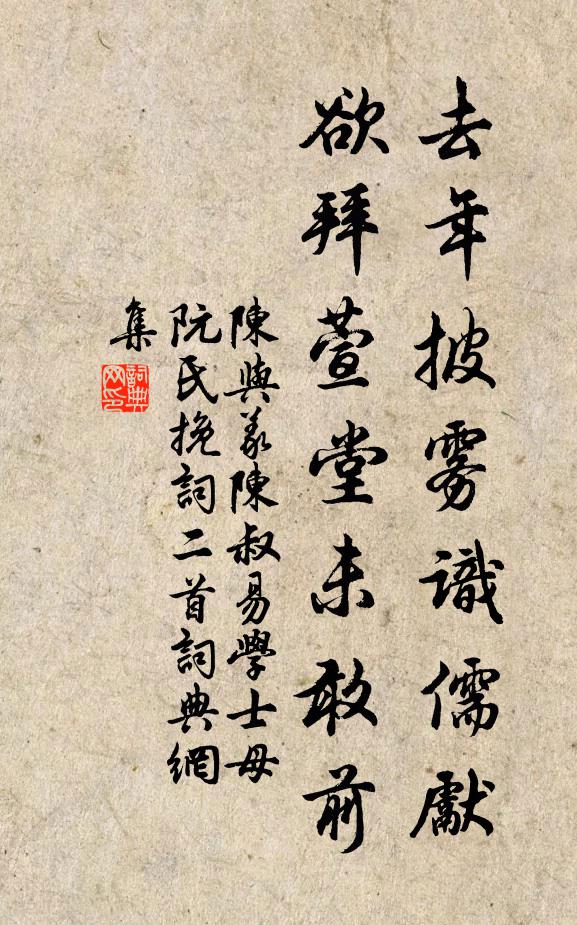 去年披雾識儒獻
欲拜萱堂未敢前
陳與義陳叔易學士母
阮氏挽詞二首詞典網
集
詞典网印